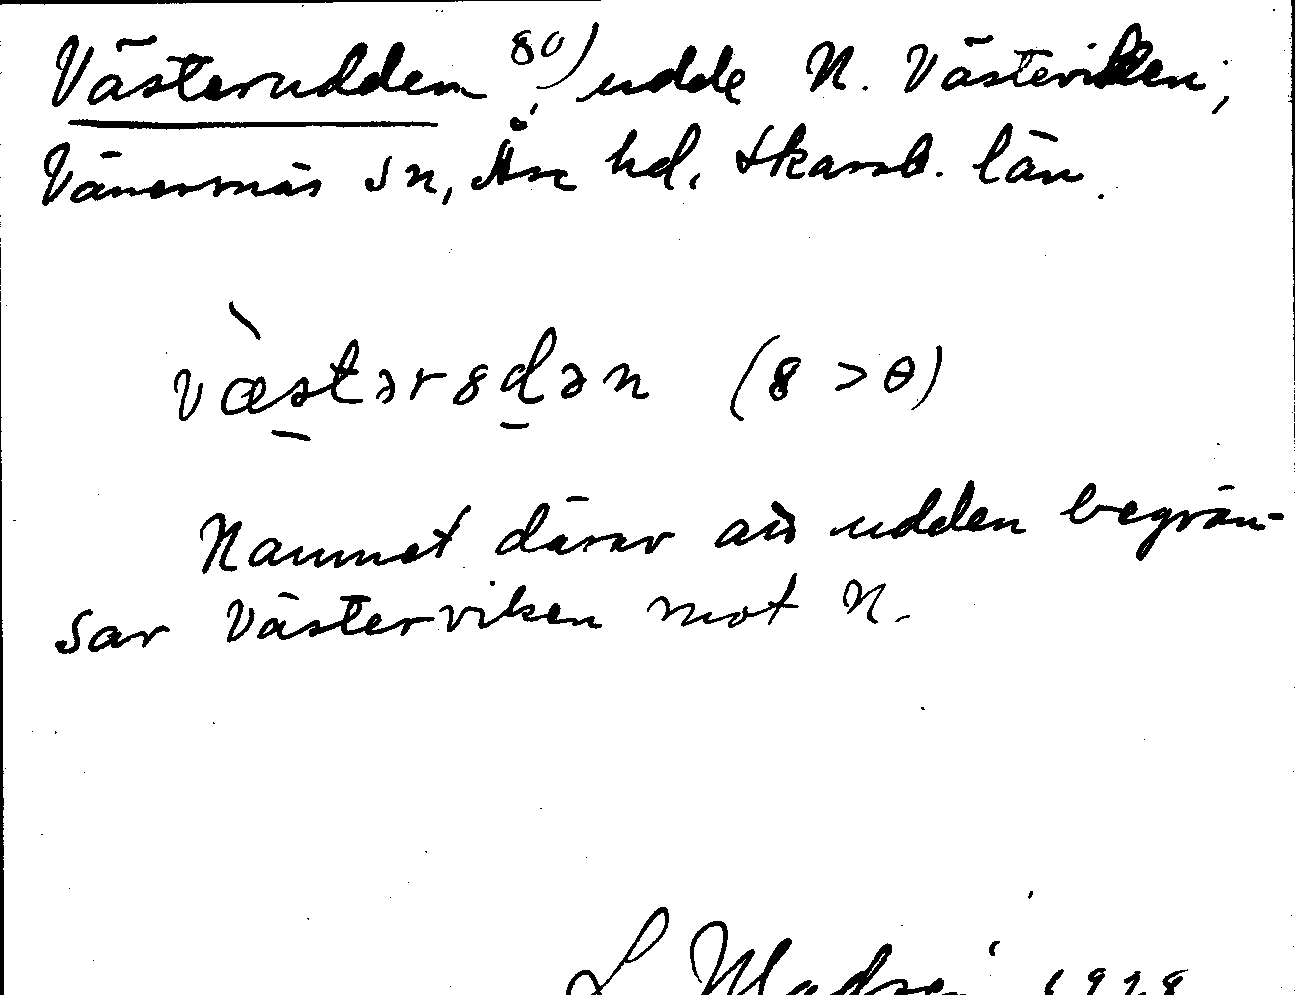 Västerudden 80) udde N. Västerviken;
Vänersnäs sn, Åse hd, Skarab. län.
væstərȣdən (ȣ > θ)
Namnet därav att udden begrän-
sar Västerviken mot N.
1928